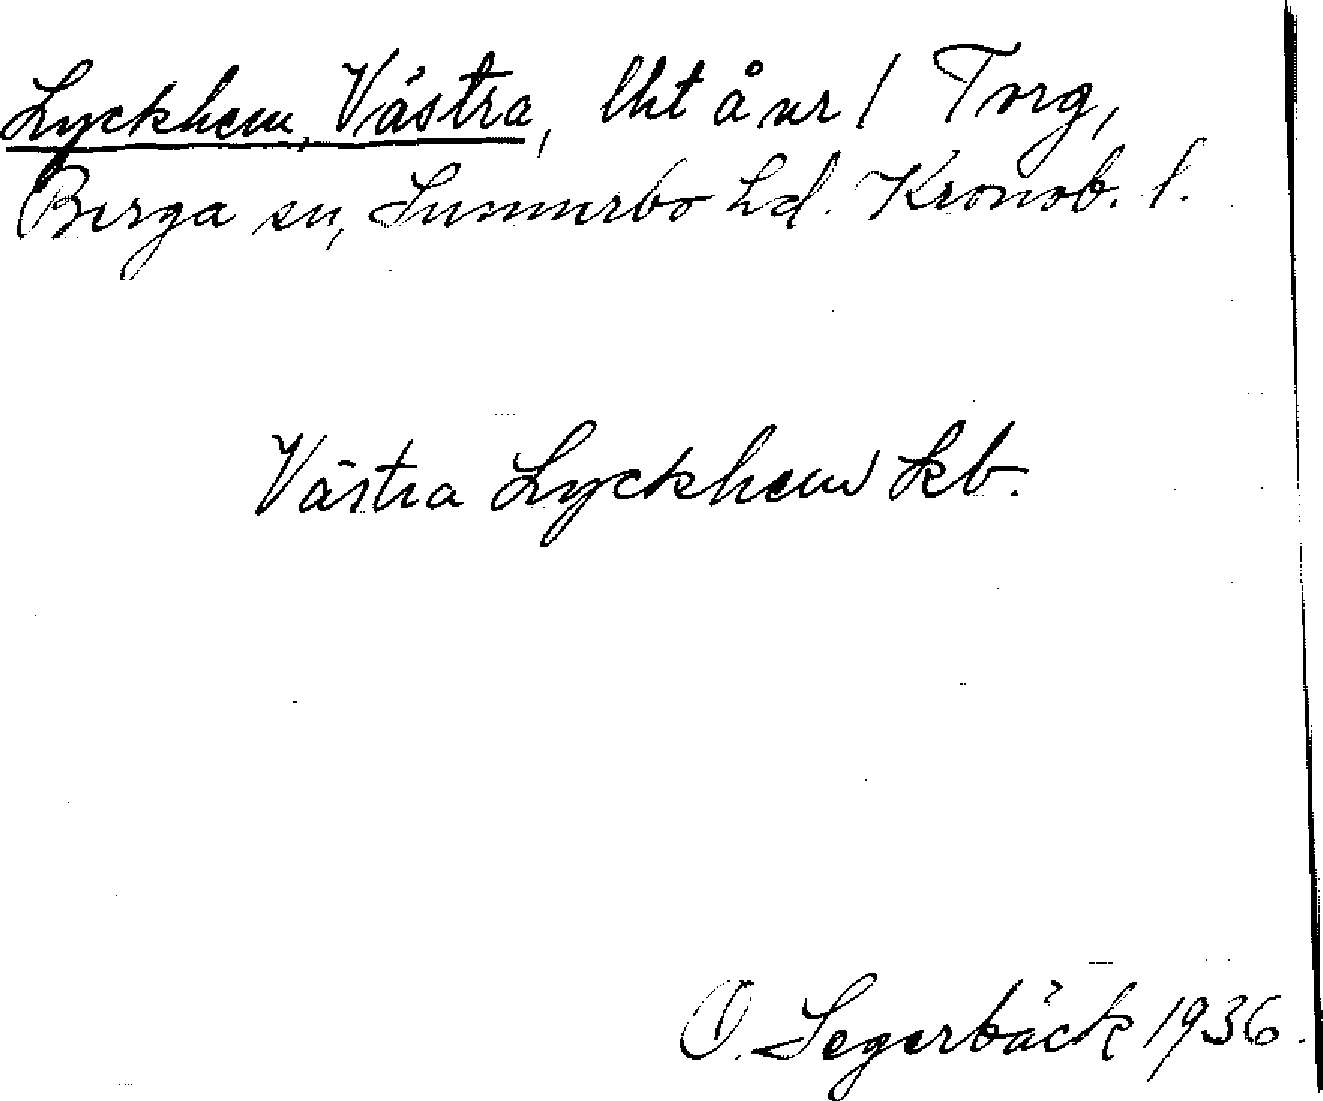 Lyckhem, Västra, lht å nr 1 Torg,
Berga sn, Sunnerbo hd. Kronob. l.
Västra Lyckhem kb.
O. Segerbäck 1936.